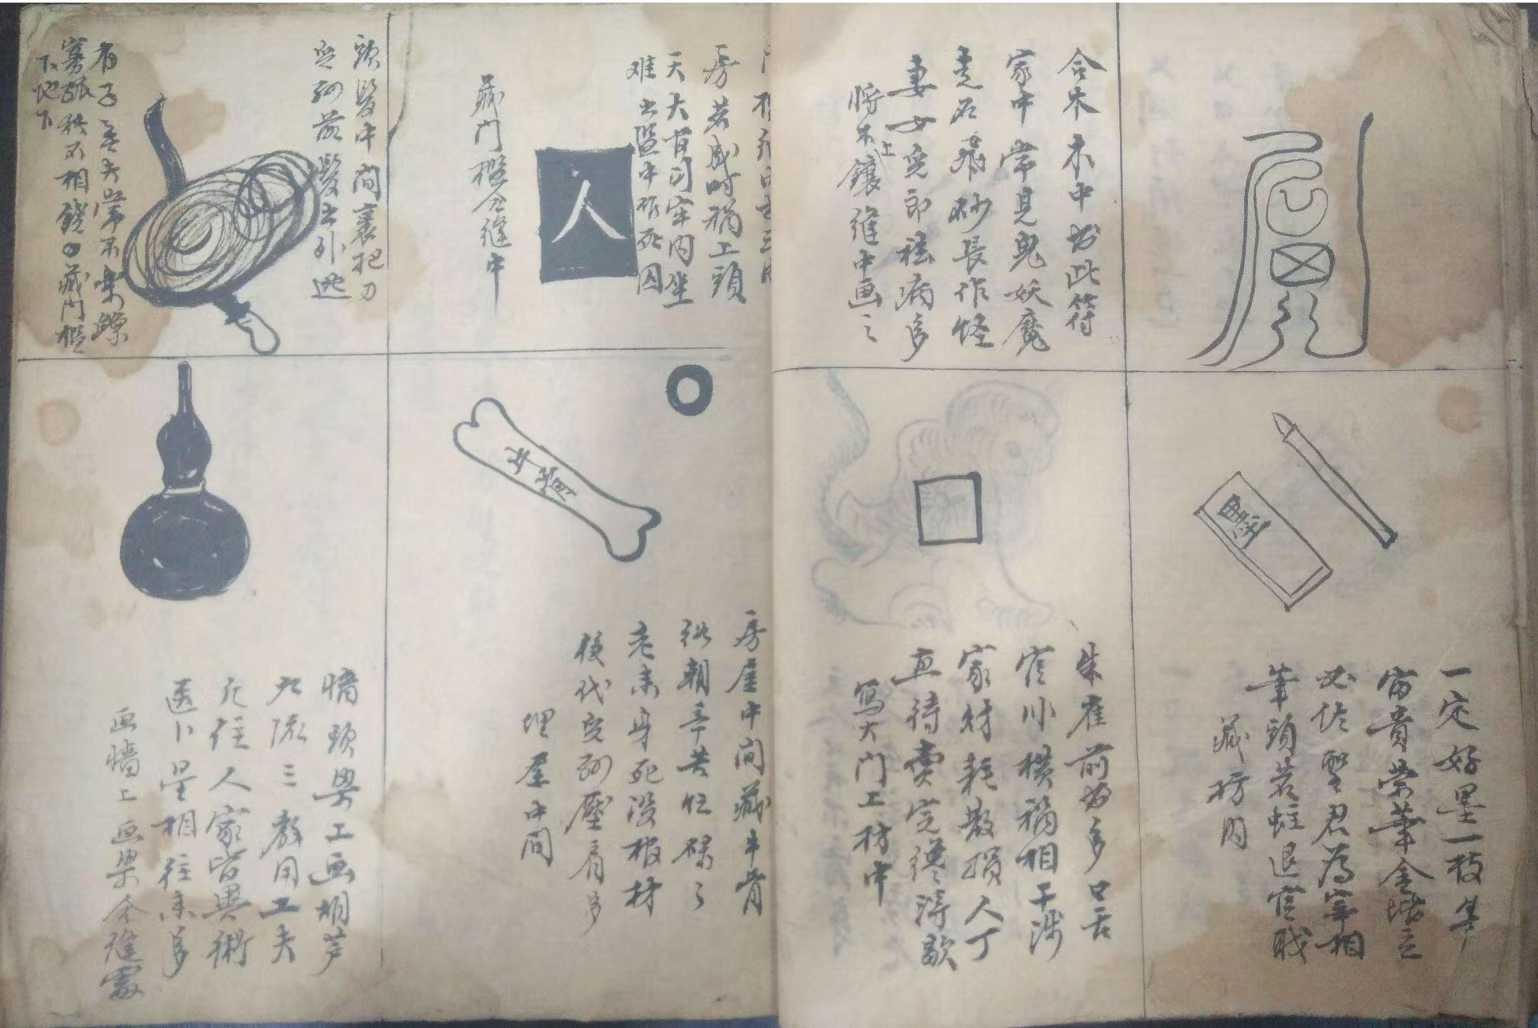 合木木中书此符
家中常見鬼妖魔
走石飛砂長作怪
妻女兒郎怯病多
將木上鑲縫中画之
墨
一定好墨一枝筆
富貴榮華金堦立
必佐聖君為宰相
筆頭若蛀退官职
藏枋内
朱雀前书多口舌
官小横禍相干涉
家財耗散損人丁
直待賣完纔得歇
寫大门上枋中
房若成时禍上頭
天大官司牢内坐
难出監中作死囚
人
藏门檻合縫中
頭髮中間裹把刀
兒孙落髮出外逃
有子無夫常不樂鰥
寡孤独不相饒〇藏门檻
下地下
牛骨
房屋中間藏牛骨
终朝辛苦忙碌々
老来身死没棺材
後代兒孙壓肩多
埋屋中間
墙頭梁上画胡芦
九流三教用工夫
凡住人家皆異術
医卜星相往来多
画墙上画梁合縫處